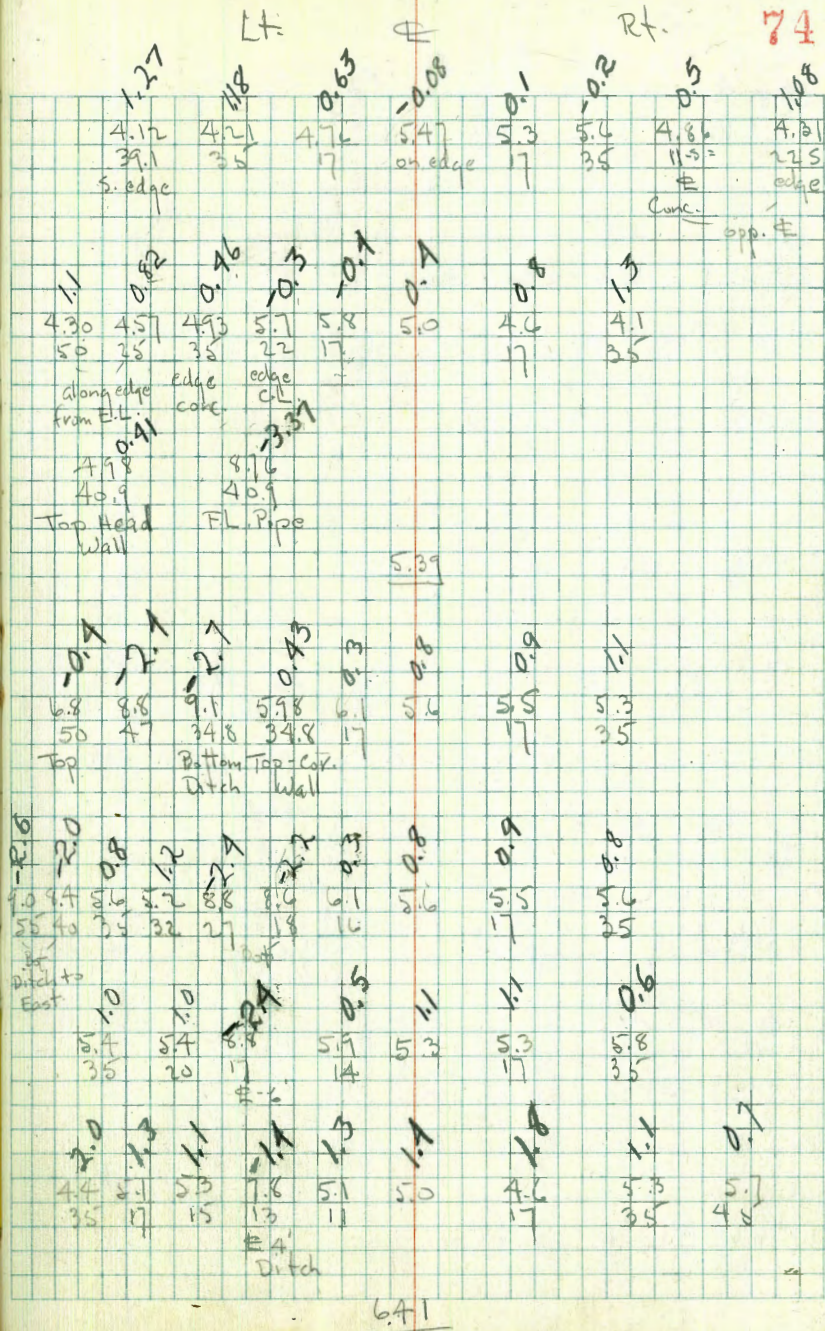 Lt. ℄ Rt. 74
1.27 1.18 0.63 -0.08 0.1 -0.2 0.5 1.08
4.12 4.21 4.76 5.47 5.3 5.6 4.86 4.31
39.1 35 17 on edge 17 35 11.5= 22.5
S. edge ℄ edge
Conc. opp. ℄
1.1 0.82 0.46 -0.3 -0.4 0.4 0.8 1.3
4.30 4.57 4.93 5.7 5.8 5.0 4.6 4.1
50 25 35 22 17 17 35
along edge edge edge
from E.L. conc. C.L.
0.41 -3.37
4.98 8.76
40.9 40.9
Top Head F.L. Pipe
Wall
5.39
-0.4 -2.4 -2.7 0.43 0.3 0.8 0.9 1.1
6.8 8.8 9.1 5.98 6.1 5.6 5.5 5.3
50 47 34.8 34.8 17 17 35
Top Bottom Top-Cor.
Ditch Wall
-2.6 -2.0 0.8 1.2 -2.4 -2.2 0.3 0.8 0.9 0.8
9.0 8.4 5.6 5.2 8.8 8.6 6.1 5.6 5.5 5.6
55 40 35 32 27 18 16 17 35
Bot.
Ditch to
East
1.0 1.0 -2.4 0.5 1.1 1.1 0.6
5.4 5.4 8.8 5.9 5.3 5.3 5.8
35 20 17 14 17 35
℄-6'
2.0 1.3 1.1 -1.4 1.3 1.4 1.8 1.1 0.7
4.4 5.1 5.3 7.8 5.1 5.0 4.6 5.3 5.7
35 17 15 13 11 17 35 45
℄ 4'
Ditch
6.41